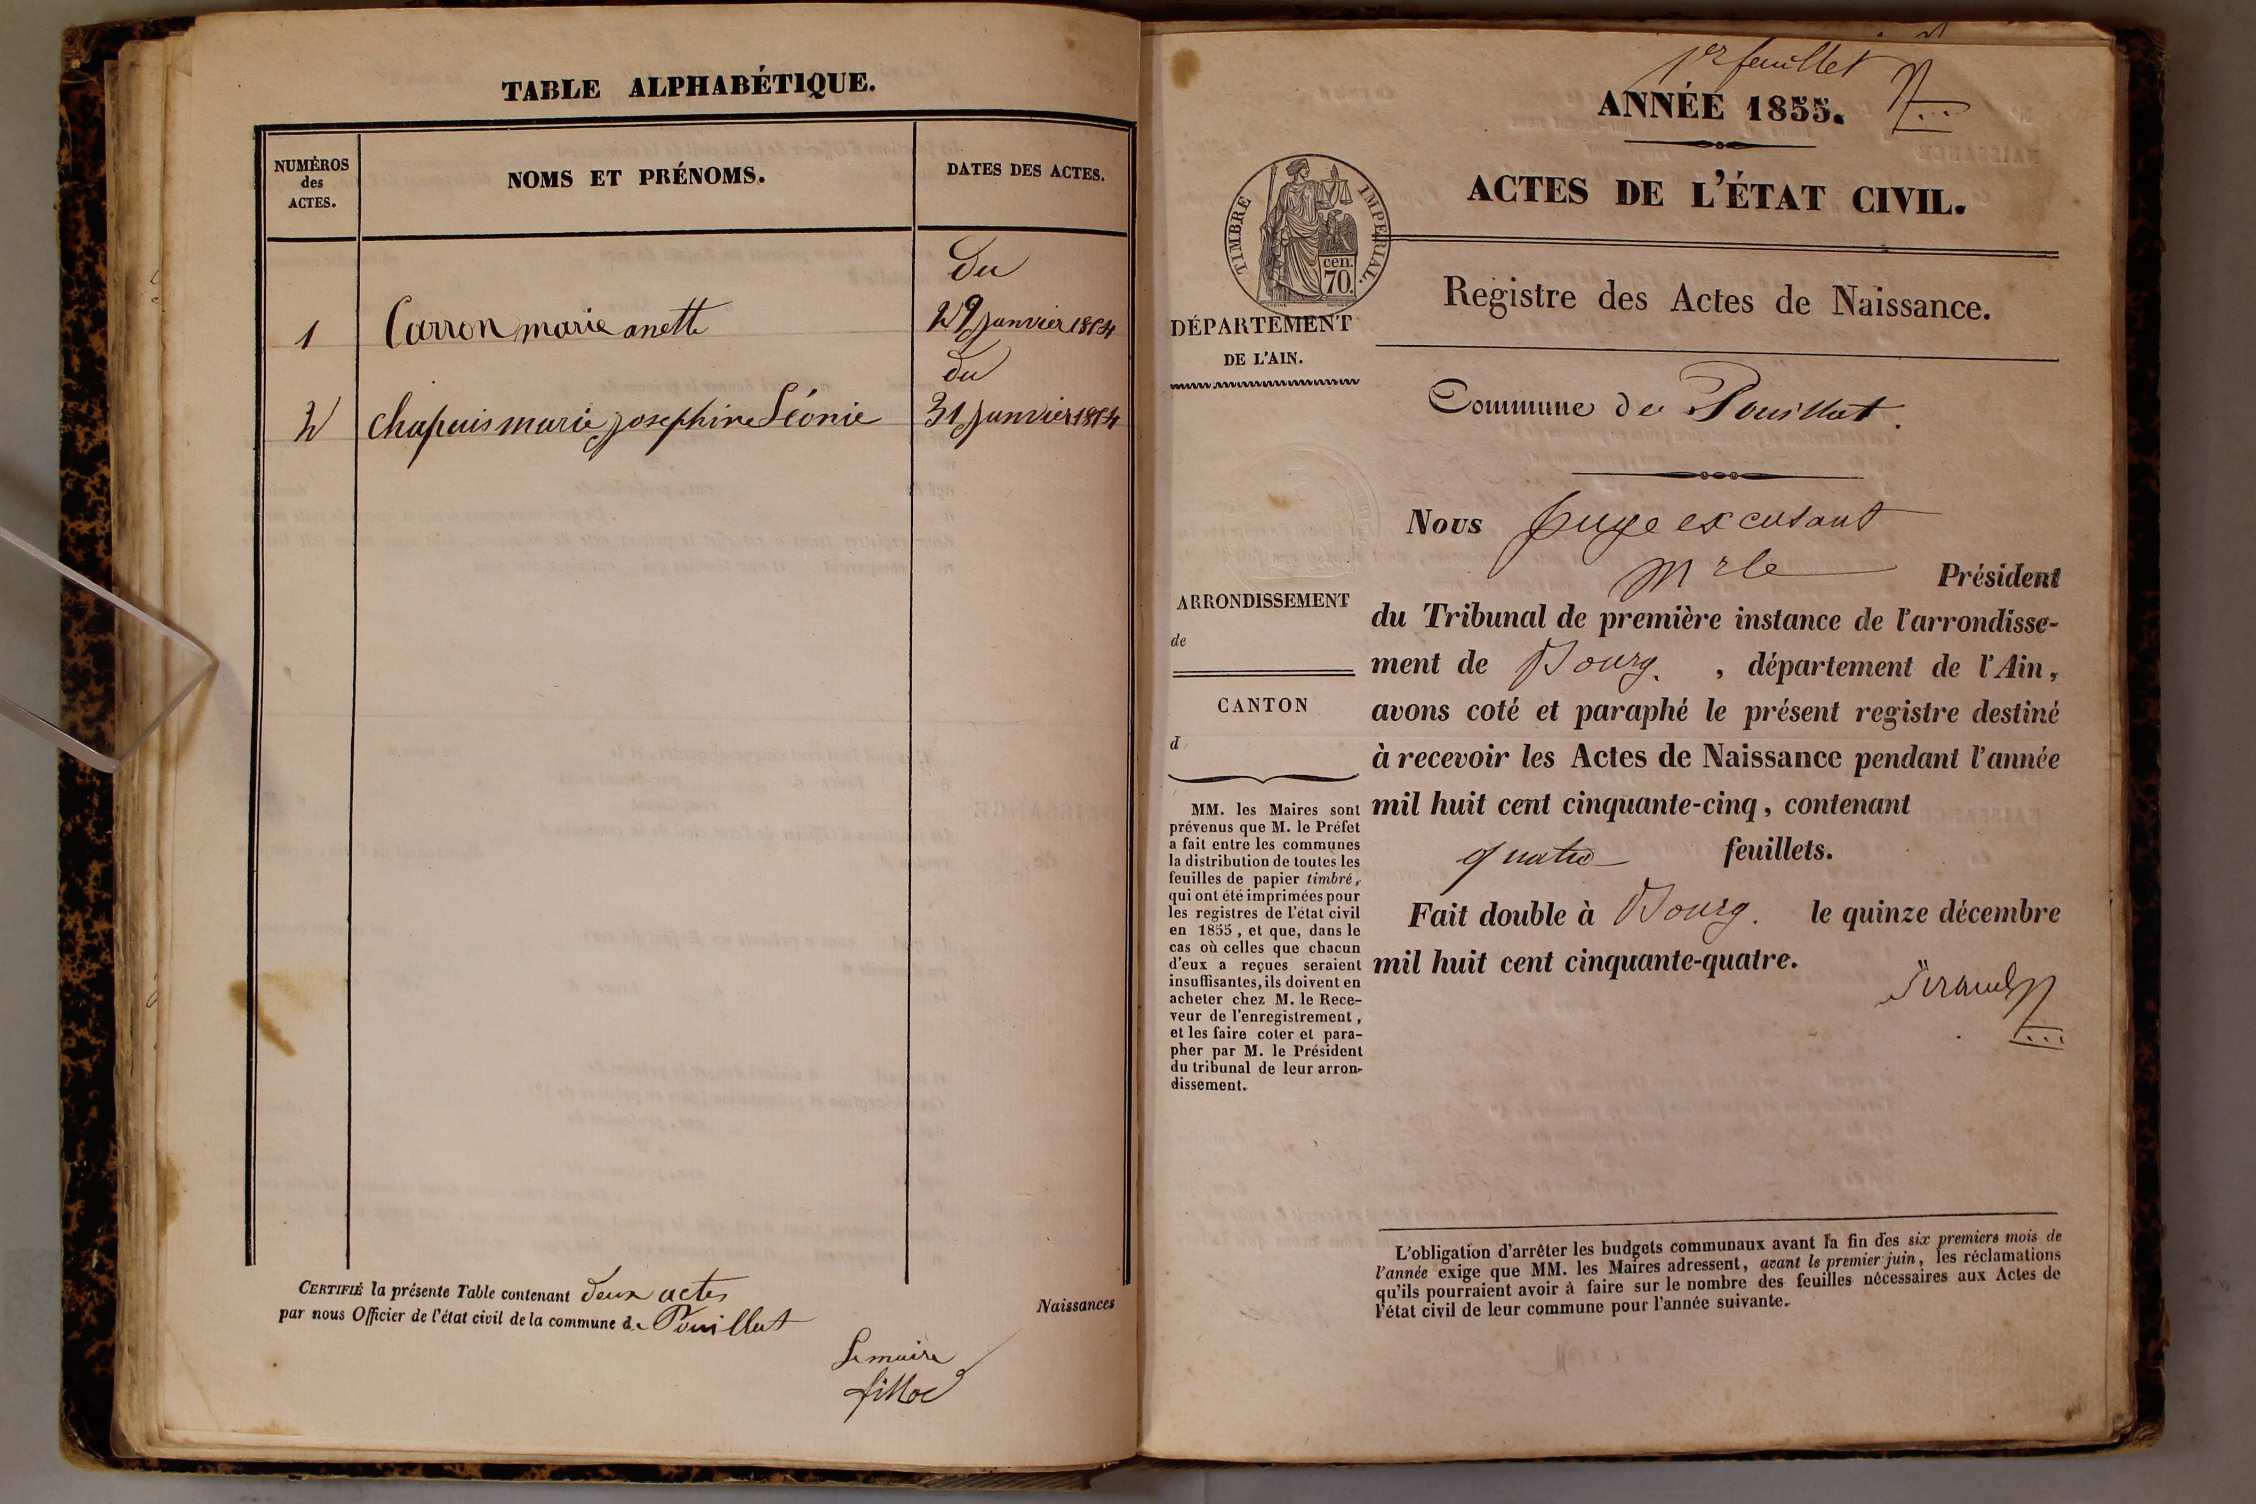 TABLE ALPHABÉTIQUE.
NUMÉROS
des
ACTES.
NOMS ET PRÉNOMS.
DATES DES ACTES.
du
1 Carron marie anette 29 janvier 1854
du
2 Chapuis marie josephine Léonie 31 janvier 1854
CERTIFIÉ la présente Table contenant deux actes
par nous Officier de l'état civil de la commune de Pouillat
Le maire
Naissances
1er feuillet
ANNÉE 1855.
ACTES DE L'ÉTAT CIVIL.
TIMBRE IMPÉRIAL.
cen.
70.
Registre des Actes de Naissance.
DÉPARTEMENT
DE L'AIN.
Commune de Pouillat.
ARRONDISSEMENT
de
CANTON
d
MM. les Maires sont
prévenus que M. le Préfet
a fait entre les communes
la distribution de toutes les
feuilles de papier timbré,
qui ont été imprimées pour
les registres de l'état civil
en 1855, et que, dans le
cas où celles que chacun
d'eux a reçues seraient
insuffisantes, ils doivent en
acheter chez M. le Rece-
veur de l'enregistrement,
et les faire coter et para-
pher par M. le Président
du tribunal de leur arron-
dissement.
Nous Juge excusant
Mr le Président
du Tribunal de première instance de l'arrondisse-
ment de Bourg. , département de l'Ain,
avons coté et paraphé le présent registre destiné
à recevoir les Actes de Naissance pendant l'année
mil huit cent cinquante-cinq, contenant
quatre feuillets.
Fait double à Bourg. le quinze décembre
mil huit cent cinquante-quatre.
L'obligation d'arrêter les budgets communaux avant la fin des six premiers mois de
l'année exige que MM. les Maires adressent, avant le premier juin, les réclamations
qu'ils pourraient avoir à faire sur le nombre des feuilles nécessaires aux Actes de
l'état civil de leur commune pour l'année suivante.